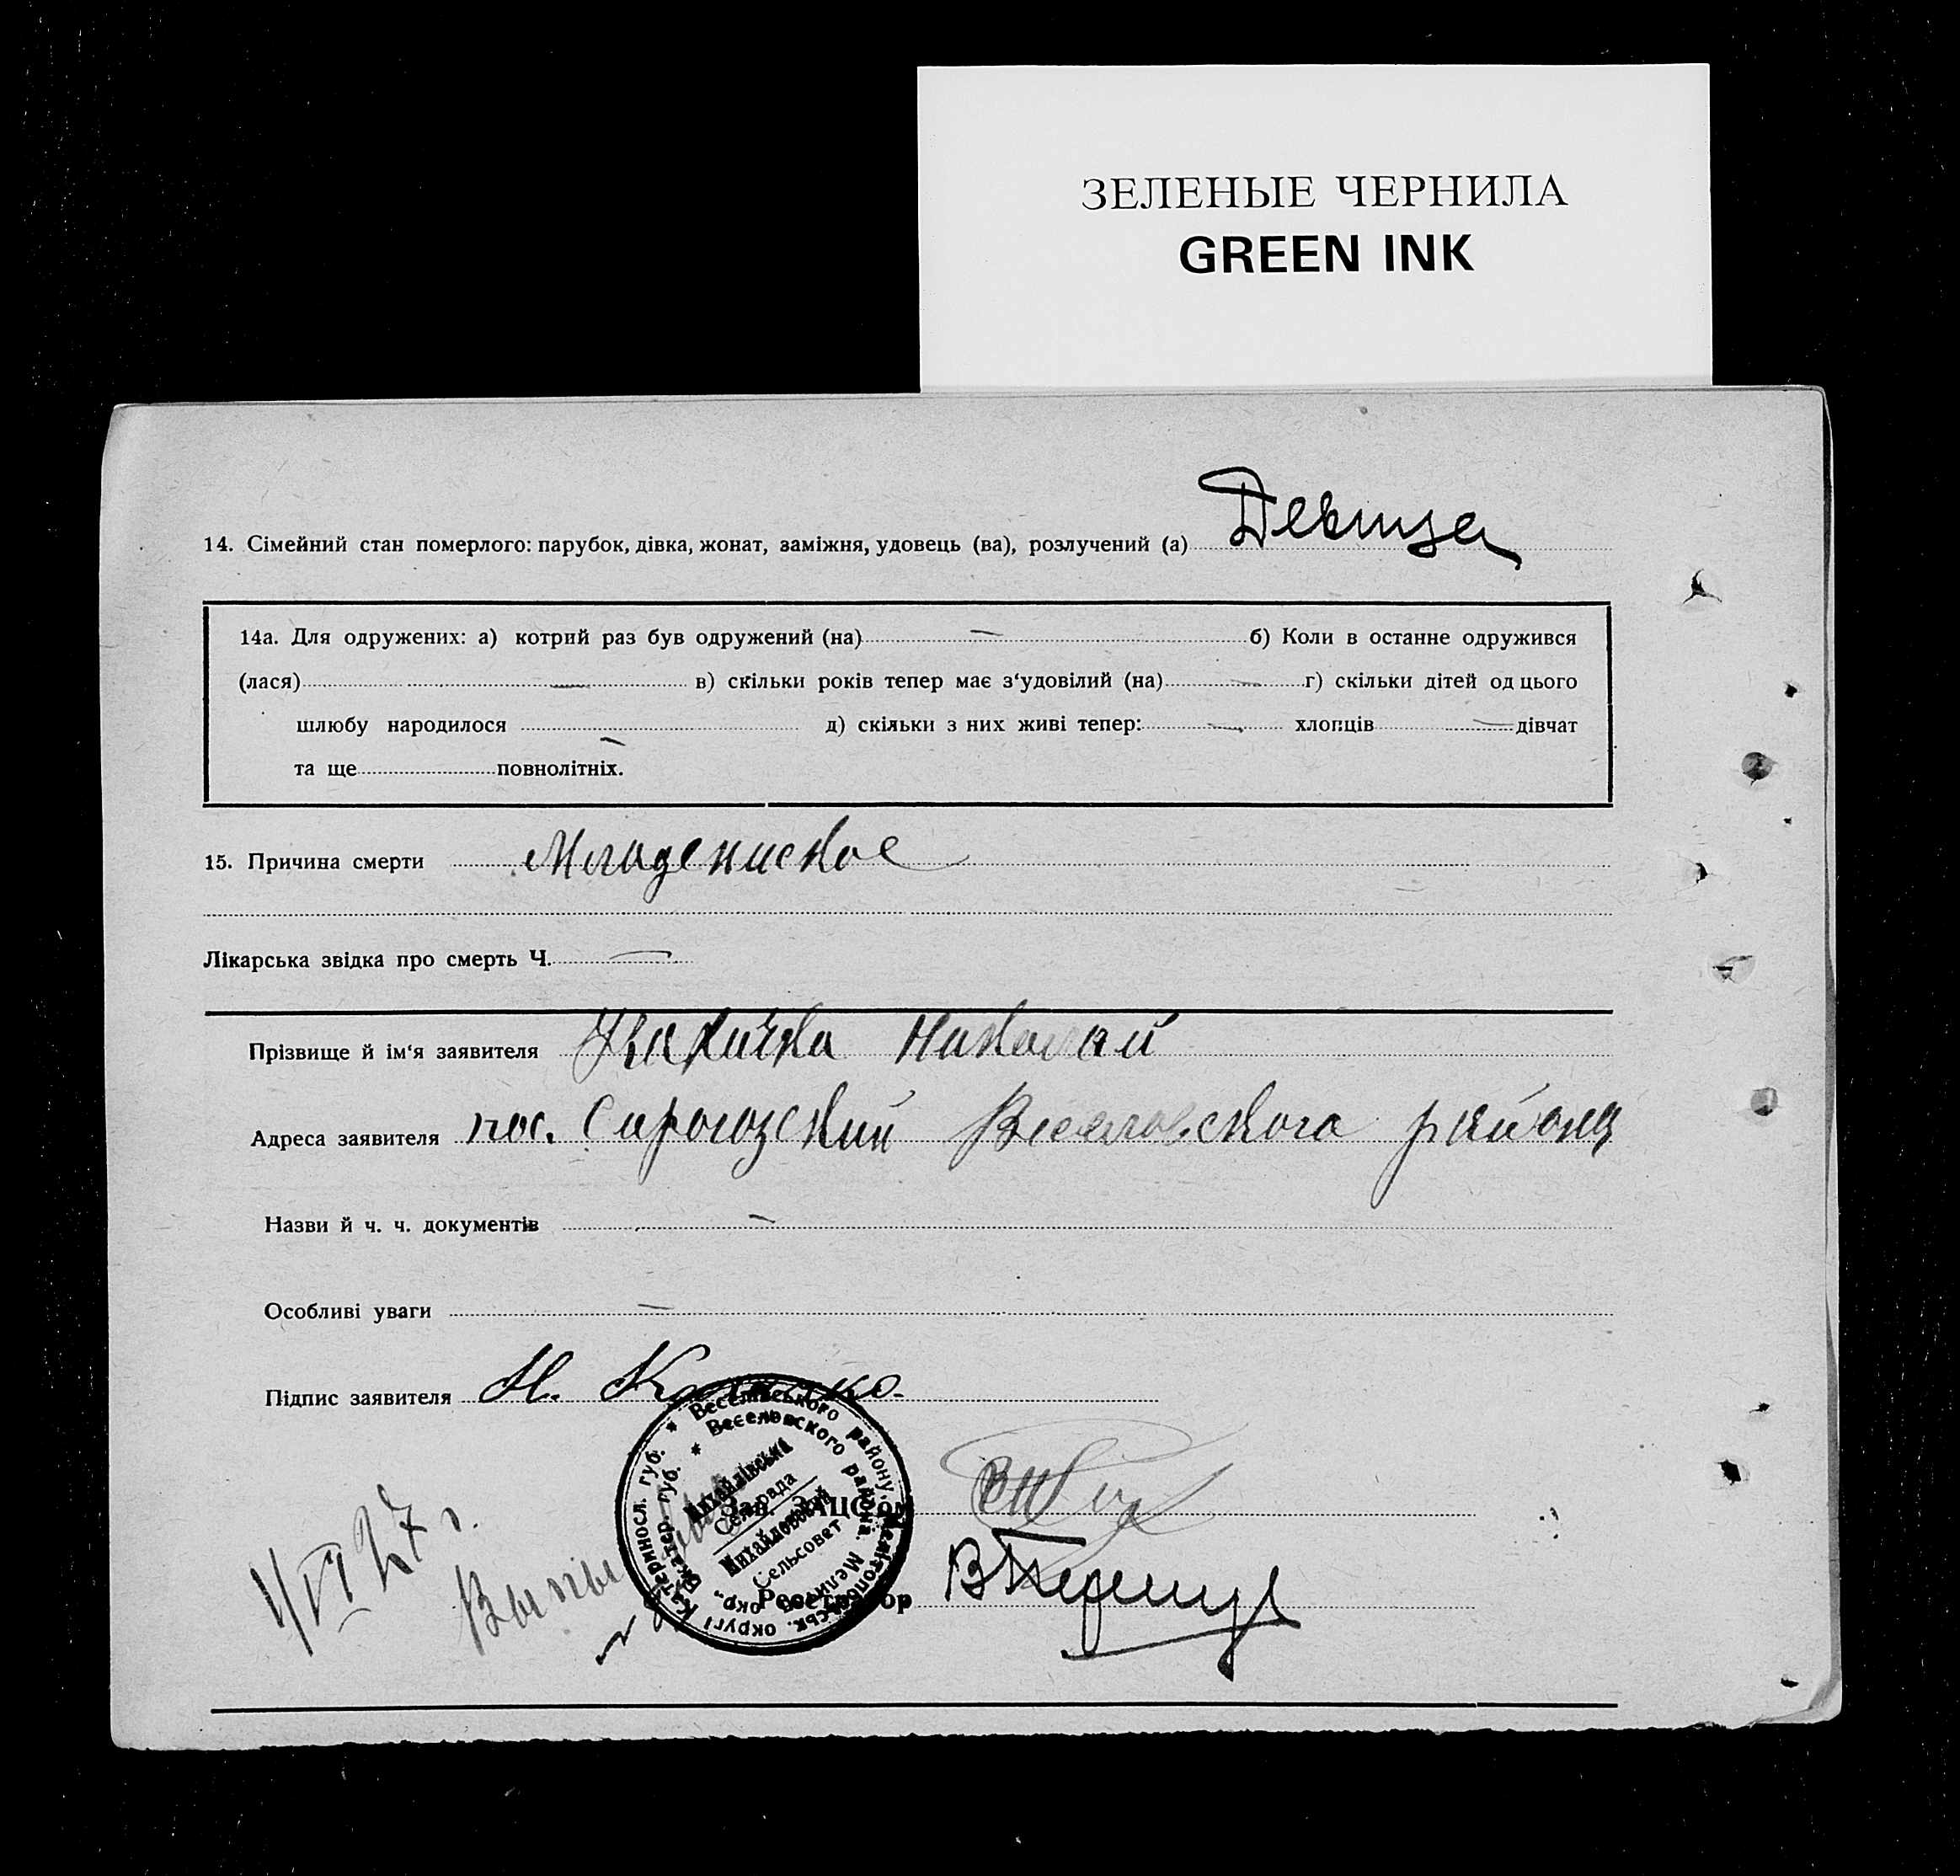 ЗЕЛЕНЫЕ ЧЕРНИЛА
GREEN INK
14. Сімейний стан померлого: парубок, дівка, жонат, заміжня, удовець (ва), розлучений (а) Девица
14а. Для одружених: а) котрий раз був одружений (на) — б) Коли в останне одружився
(лася) — в) скільки років тепер має з‘удовілий (на) — г) скільки дітей од цього
шлюбу народилося — д) скільки з них живі тепер: — хлопців — дівчат
та ще повнолітніх.
15. Причина смерти Младенческое
Лікарська звідка про смерть Ч. —
Прізвище й ім‘я заявителя Николай
Адреса заявителя пос. Сирогозский Веселовского района
Назви й ч. ч. документів —
Особливі уваги —
Підпис заявителя Н.
* Веселівського району, Мелітопольськ. округі Катериносл. губ.
* Веселовского района. Мелит. окр., Екатер. губ.
Михайлівська
Сельрада
Михайловский
Сельсовет
Зав. ЗАЦС'ом
Реєстратор
1/VI 27 г.